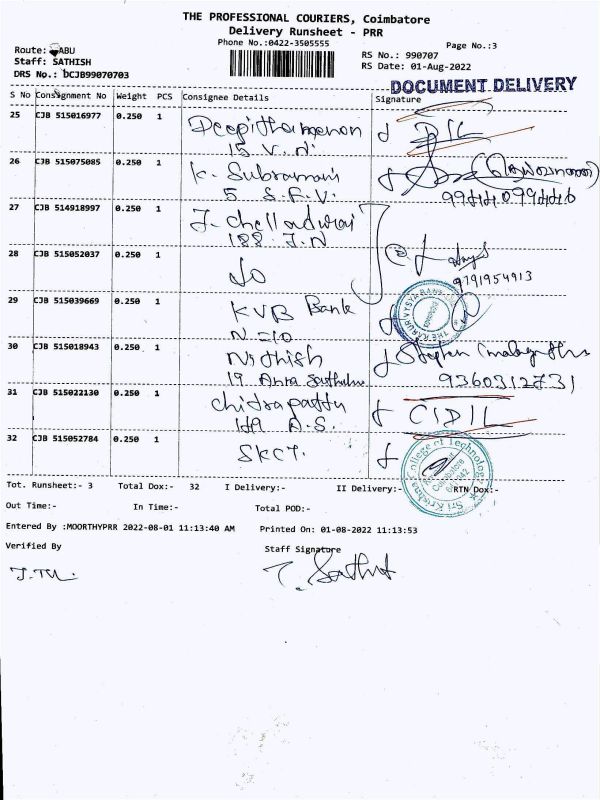 THE PROFESSIONAL COURIERS, Coimbatore
Delivery Runsheet - PRR
Phone No.:0422-3505555
Page No.:3
Route: ABU
Staff: SATHISH
DRS No.: DCJB99070703
RS No.: 990707
RS Date: 01-Aug-2022
DOCUMENT DELIVERY
S No Consignment No Weight PCS Consignee Details Signature
25 CJB 515016977 0.250 1 Deepithamenon
15 V.N.
26 CJB 515075085 0.250 1 K. Subramani
5 S.F.V.
27 CJB 514918997 0.250 1 J. Chelladurai
188 J.N
28 CJB 515052037 0.250 1 do
9791954913
29 CJB 515039669 0.250 1 KVB Bank
N=10
30 CJB 515018943 0.250 1 Nithish Stephen
19 Anna 9360312731
31 CJB 515022130 0.250 1 Chitrapattu
149 A.S.
32 CJB 515052784 0.250 1 SKCT.
Sri Krishna College of Technology
Coimbatore
Tot. Runsheet:- 3 Total Dox:- 32 I Delivery:- II Delivery:- RTN Dox:-
Out Time:- In Time:- Total POD:-
Entered By :MOORTHYPRR 2022-08-01 11:13:40 AM Printed On: 01-08-2022 11:13:53
Verified By Staff Signature